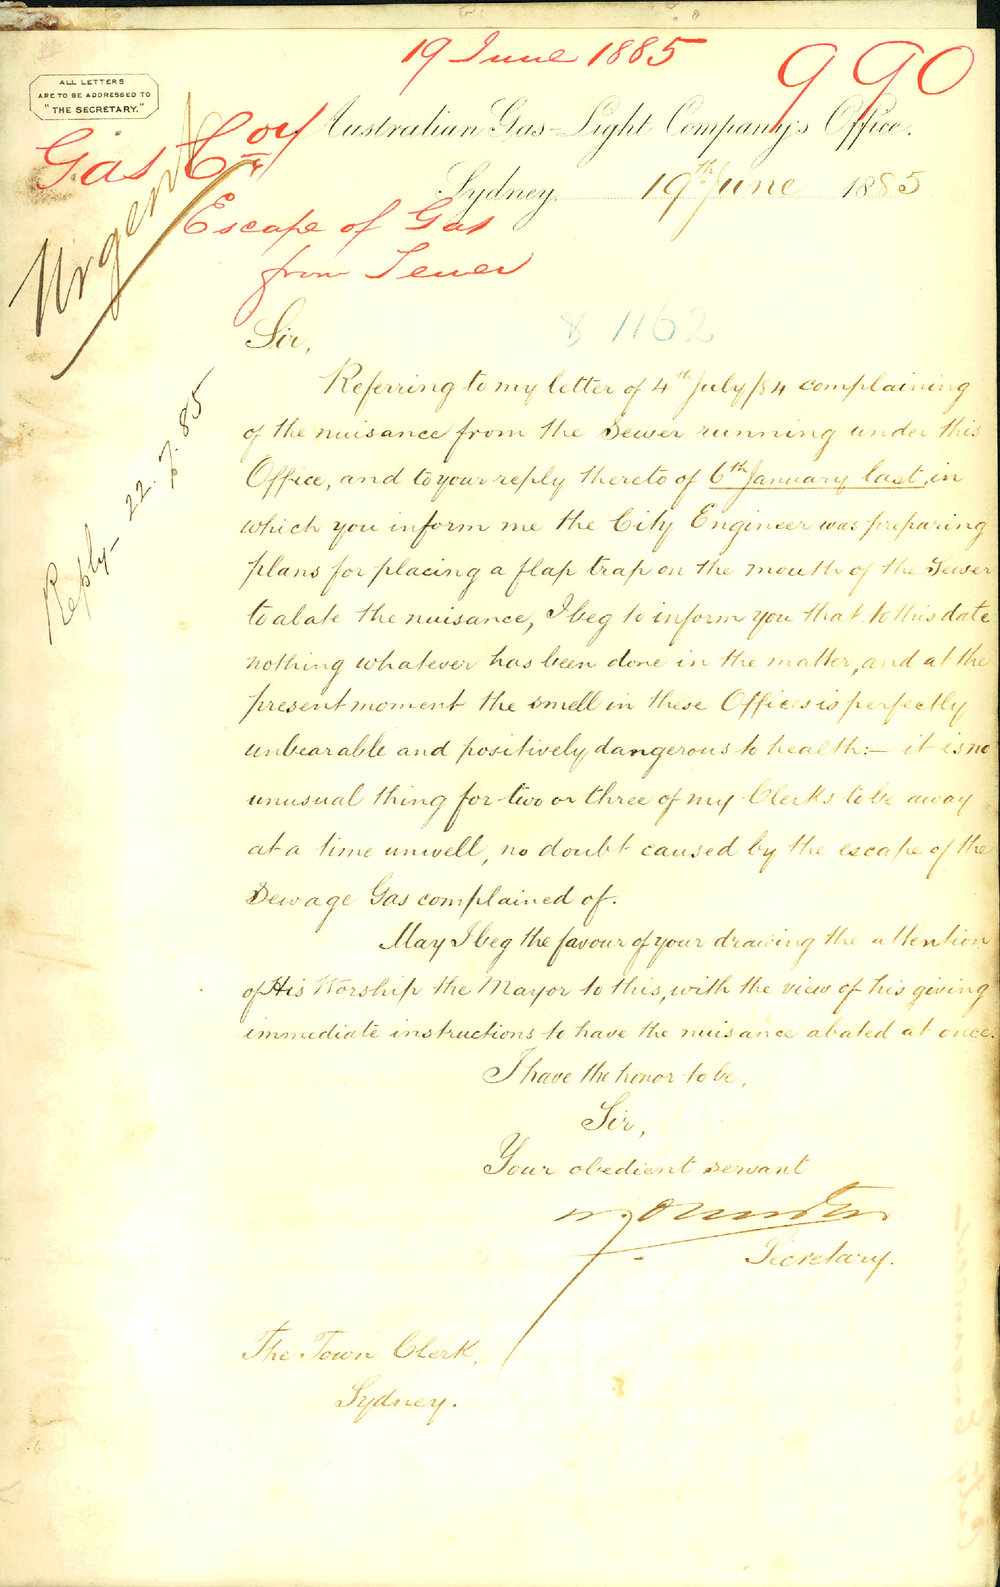 19 June 1885
990
ALL LETTERS
ARE TO BE ADDRESSED TO
"THE SECRETARY."
Gas Coy
Australian Gas-Light Company's Office.
Sydney 19th June 1885
Escape of Gas
from Sewer
Urgent
8 1162
Sir,
Reply - 22.7.85
Referring to my letter of 4th July/84 complaining
of the nuisance from the Sewer running under this
Office, and to your reply thereto of 6th January last, in
which you inform me the City Engineer was preparing
plans for placing a flap trap on the mouth of the Sewer
to abate the nuisance, I beg to inform you that to this date
nothing whatever has been done in the matter, and at the
present moment the smell in these Offices is perfectly
unbearable and positively dangerous to health:— it is no
unusual thing for two or three of my Clerks to be away
at a time unwell, no doubt caused by the escape of the
Sewage Gas complained of.
May I beg the favour of your drawing the attention
of His Worship the Mayor to this, with the view of his giving
immediate instructions to have the nuisance abated at once.
I have the honor to be,
Sir,
Your obedient servant
Secretary.
The Town Clerk,
Sydney.